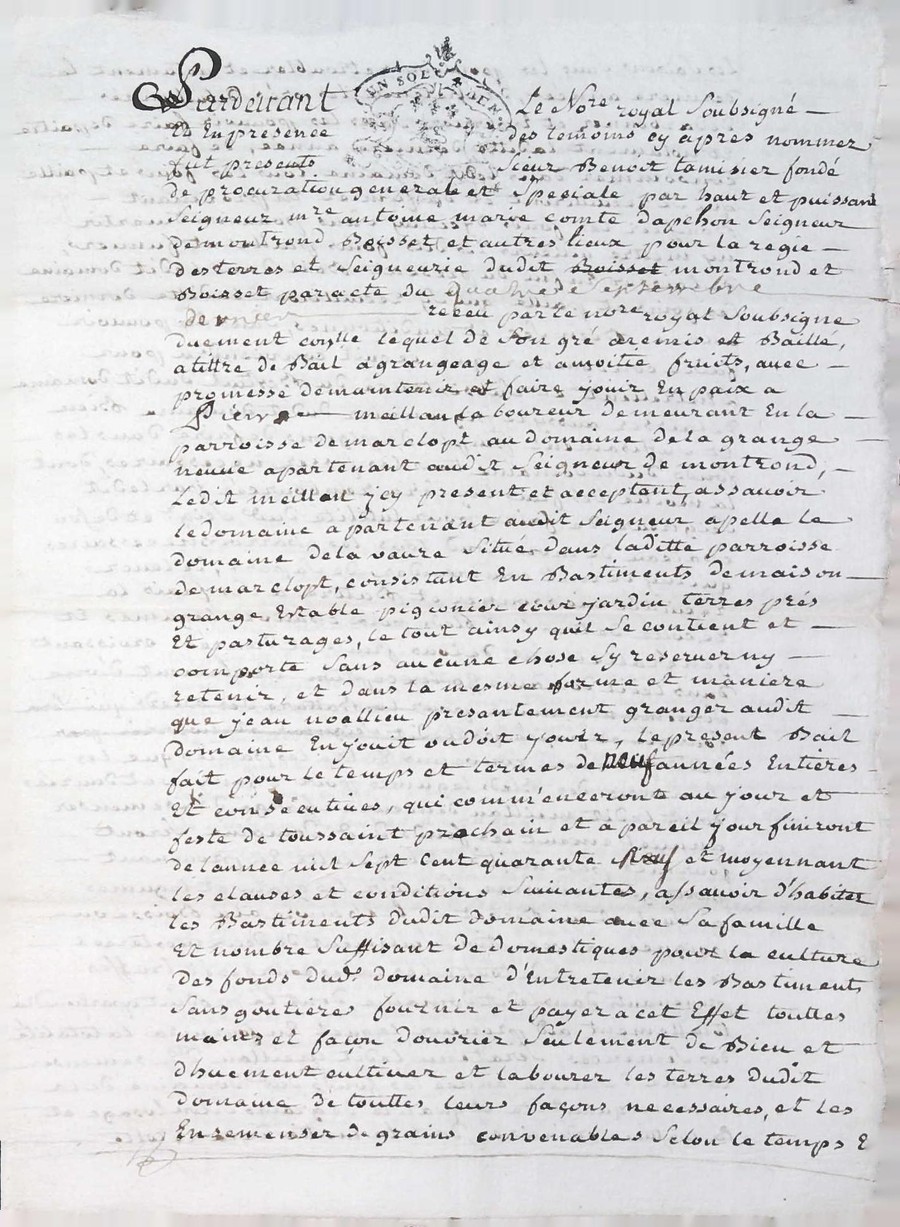 Pardevant Le No.re royal Soubsigné
Et En presence des temoins cy après nommez
fut presents Sieur Benoit tamisier fondé
de procuration generale et Speciale par haut et puissant
Seigneur m.re antoine marie comte dapchon Seigneur
de montrond Boisset et autres lieux pour la regie
des terres et Seigneurie dudit Boisset montrond et
Boisset par acte du quatre de Septembre
dernier receu par le no.re royal Soubsigne
duement conlle lequel de Son gré a remis et Baillé,
a tiltre de Bail a grangeage et amoitié fruits, avec
promesse de maintenir et faire jouir En paix a
Pierre meillan laboureur demeurant En la
parroisse de marclopt au domaine de la grange
neuve apartenant audit Seigneur de montrond,
Ledit meillan jcy present et acceptant, assavoir
le domaine apartenant audit Seigneur apelle le
domaine de la vaure Situé dans laditte parroisse
de marclopt, consistant En Bastiments de maison
grange Estable pigeonier cour jardin terres prés
Et pasturages, le tout ainsy quil Se contient et
comporte Sans aucune chose Sy reserver ny
retenir, et dans la mesme forme et maniere
que jean noallieu presantement granger audit
domaine En jouit ou doit jouir, le present Bail
fait pour le temps et termes de neuf années Entieres
Et consecutives, qui comm'enceront au jour et
feste de toussaint prochain et a pareil jour finiront
de lannee mil Sept Cent quarante Neuf et moyennant
les clauses et conditions Suivantes, assavoir d'habiter
les Bastiments dudit domaine avec Sa famille
Et nombre Suffisant de domestiques pour la culture
des fonds dud.t domaine d'Entretenir les Bastiments
Sans goutieres fournir et payer a cet Effet touttes
mainss et façon douvrier Seulement de Bien et
dhuement cultiver et labourer les terres dudit
domaine de touttes leurs façons necessaires, et les
Ensemenser de grains convenables Selon le temps E